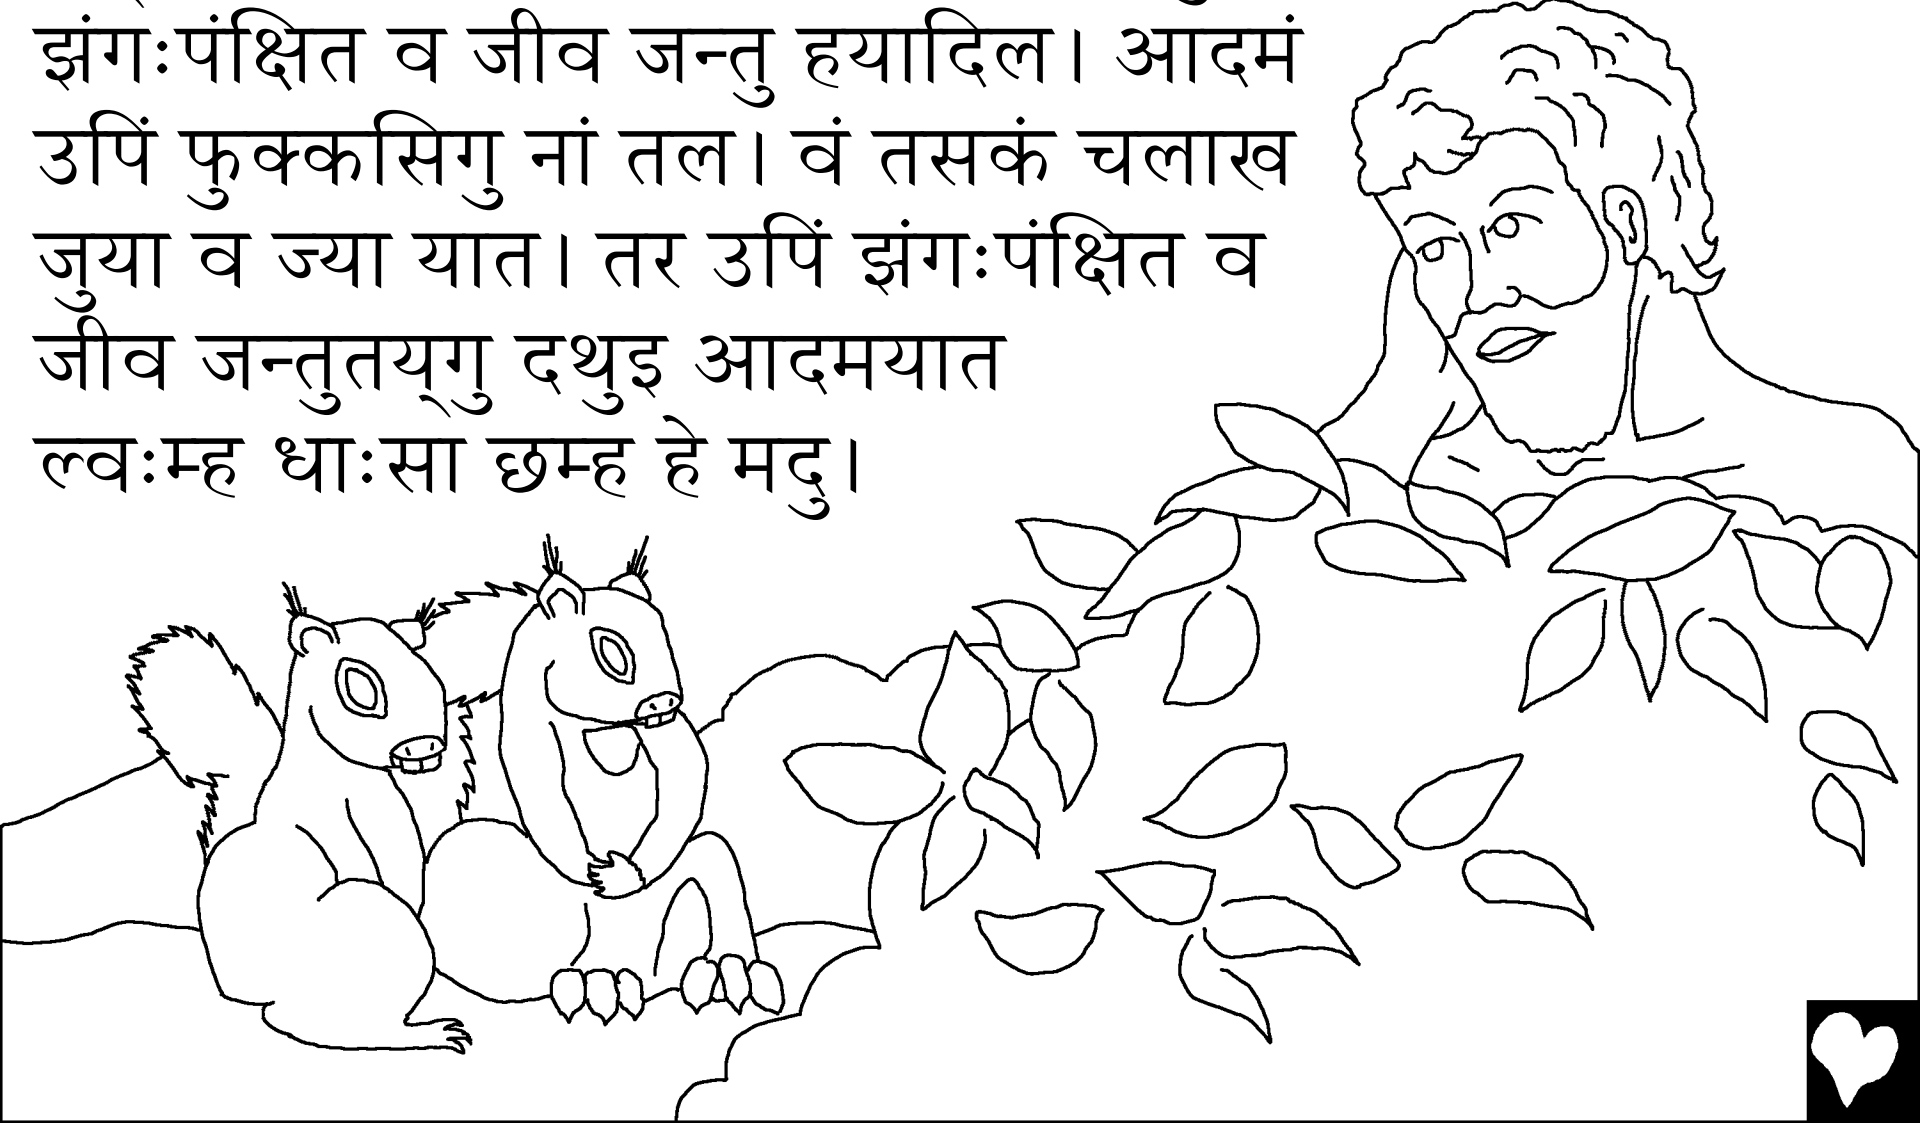 झंगःपंक्षित व जीव जन्तु हयादिल। आदमं
उपिं फुक्कसिगु नां तल। वं तसकं चलाख
जुया व ज्या यात। तर उपिं झंगःपंक्षित व
जीव जन्तुतय्‌गु दथुइ आदमयात
ल्वःम्ह धाःसा छम्ह हे मदु।